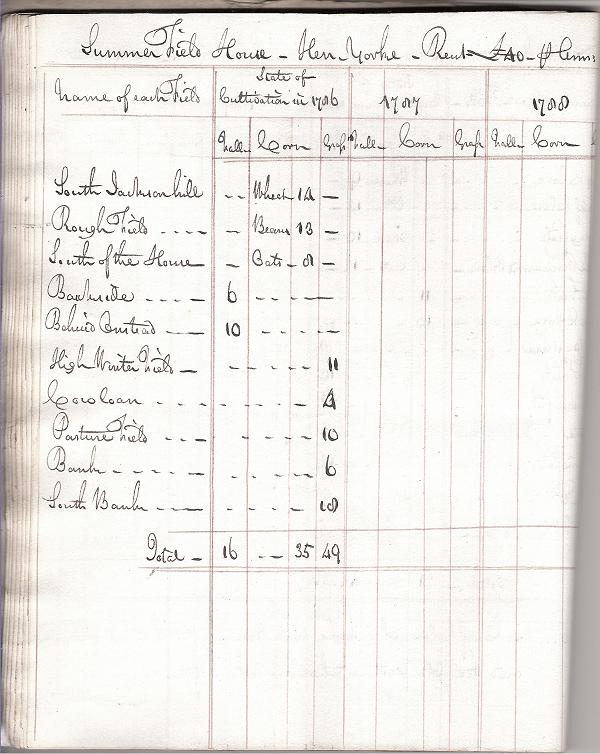 Summer Field House - Hen. Yorke - Rent £40 - ⅌ Ann:
Name of each Field State of Cultivation in 1786 1787 1788
Fall. Corn Graſs Fall. Corn Graſs Fall. Corn
South Jackson hill -- Wheat 14 -
Rough Field ---- - Beans 13 -
South of the House - Oats - 8 -
Bankside ---- 6 ----
Behind Onstead -- 10 -----
High Winter Field - ----- 11
Cow loan -------- 4
Pasture Field --- ---- 10
Bank ----- ---- 6
South Bank --- ---- 18
Total - 16 -- 35 49